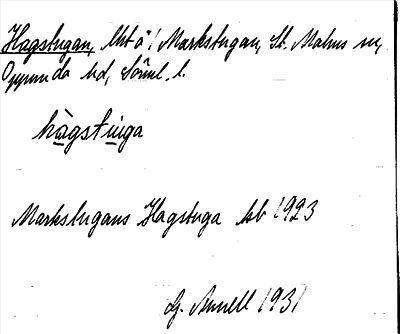 Hagstugan, lht å Markstugan, St. Malms sn,
Oppunda hd, Söml. l.
hàgstùga
Markstugans Hagstuga kb 1923
G. Annell 1931